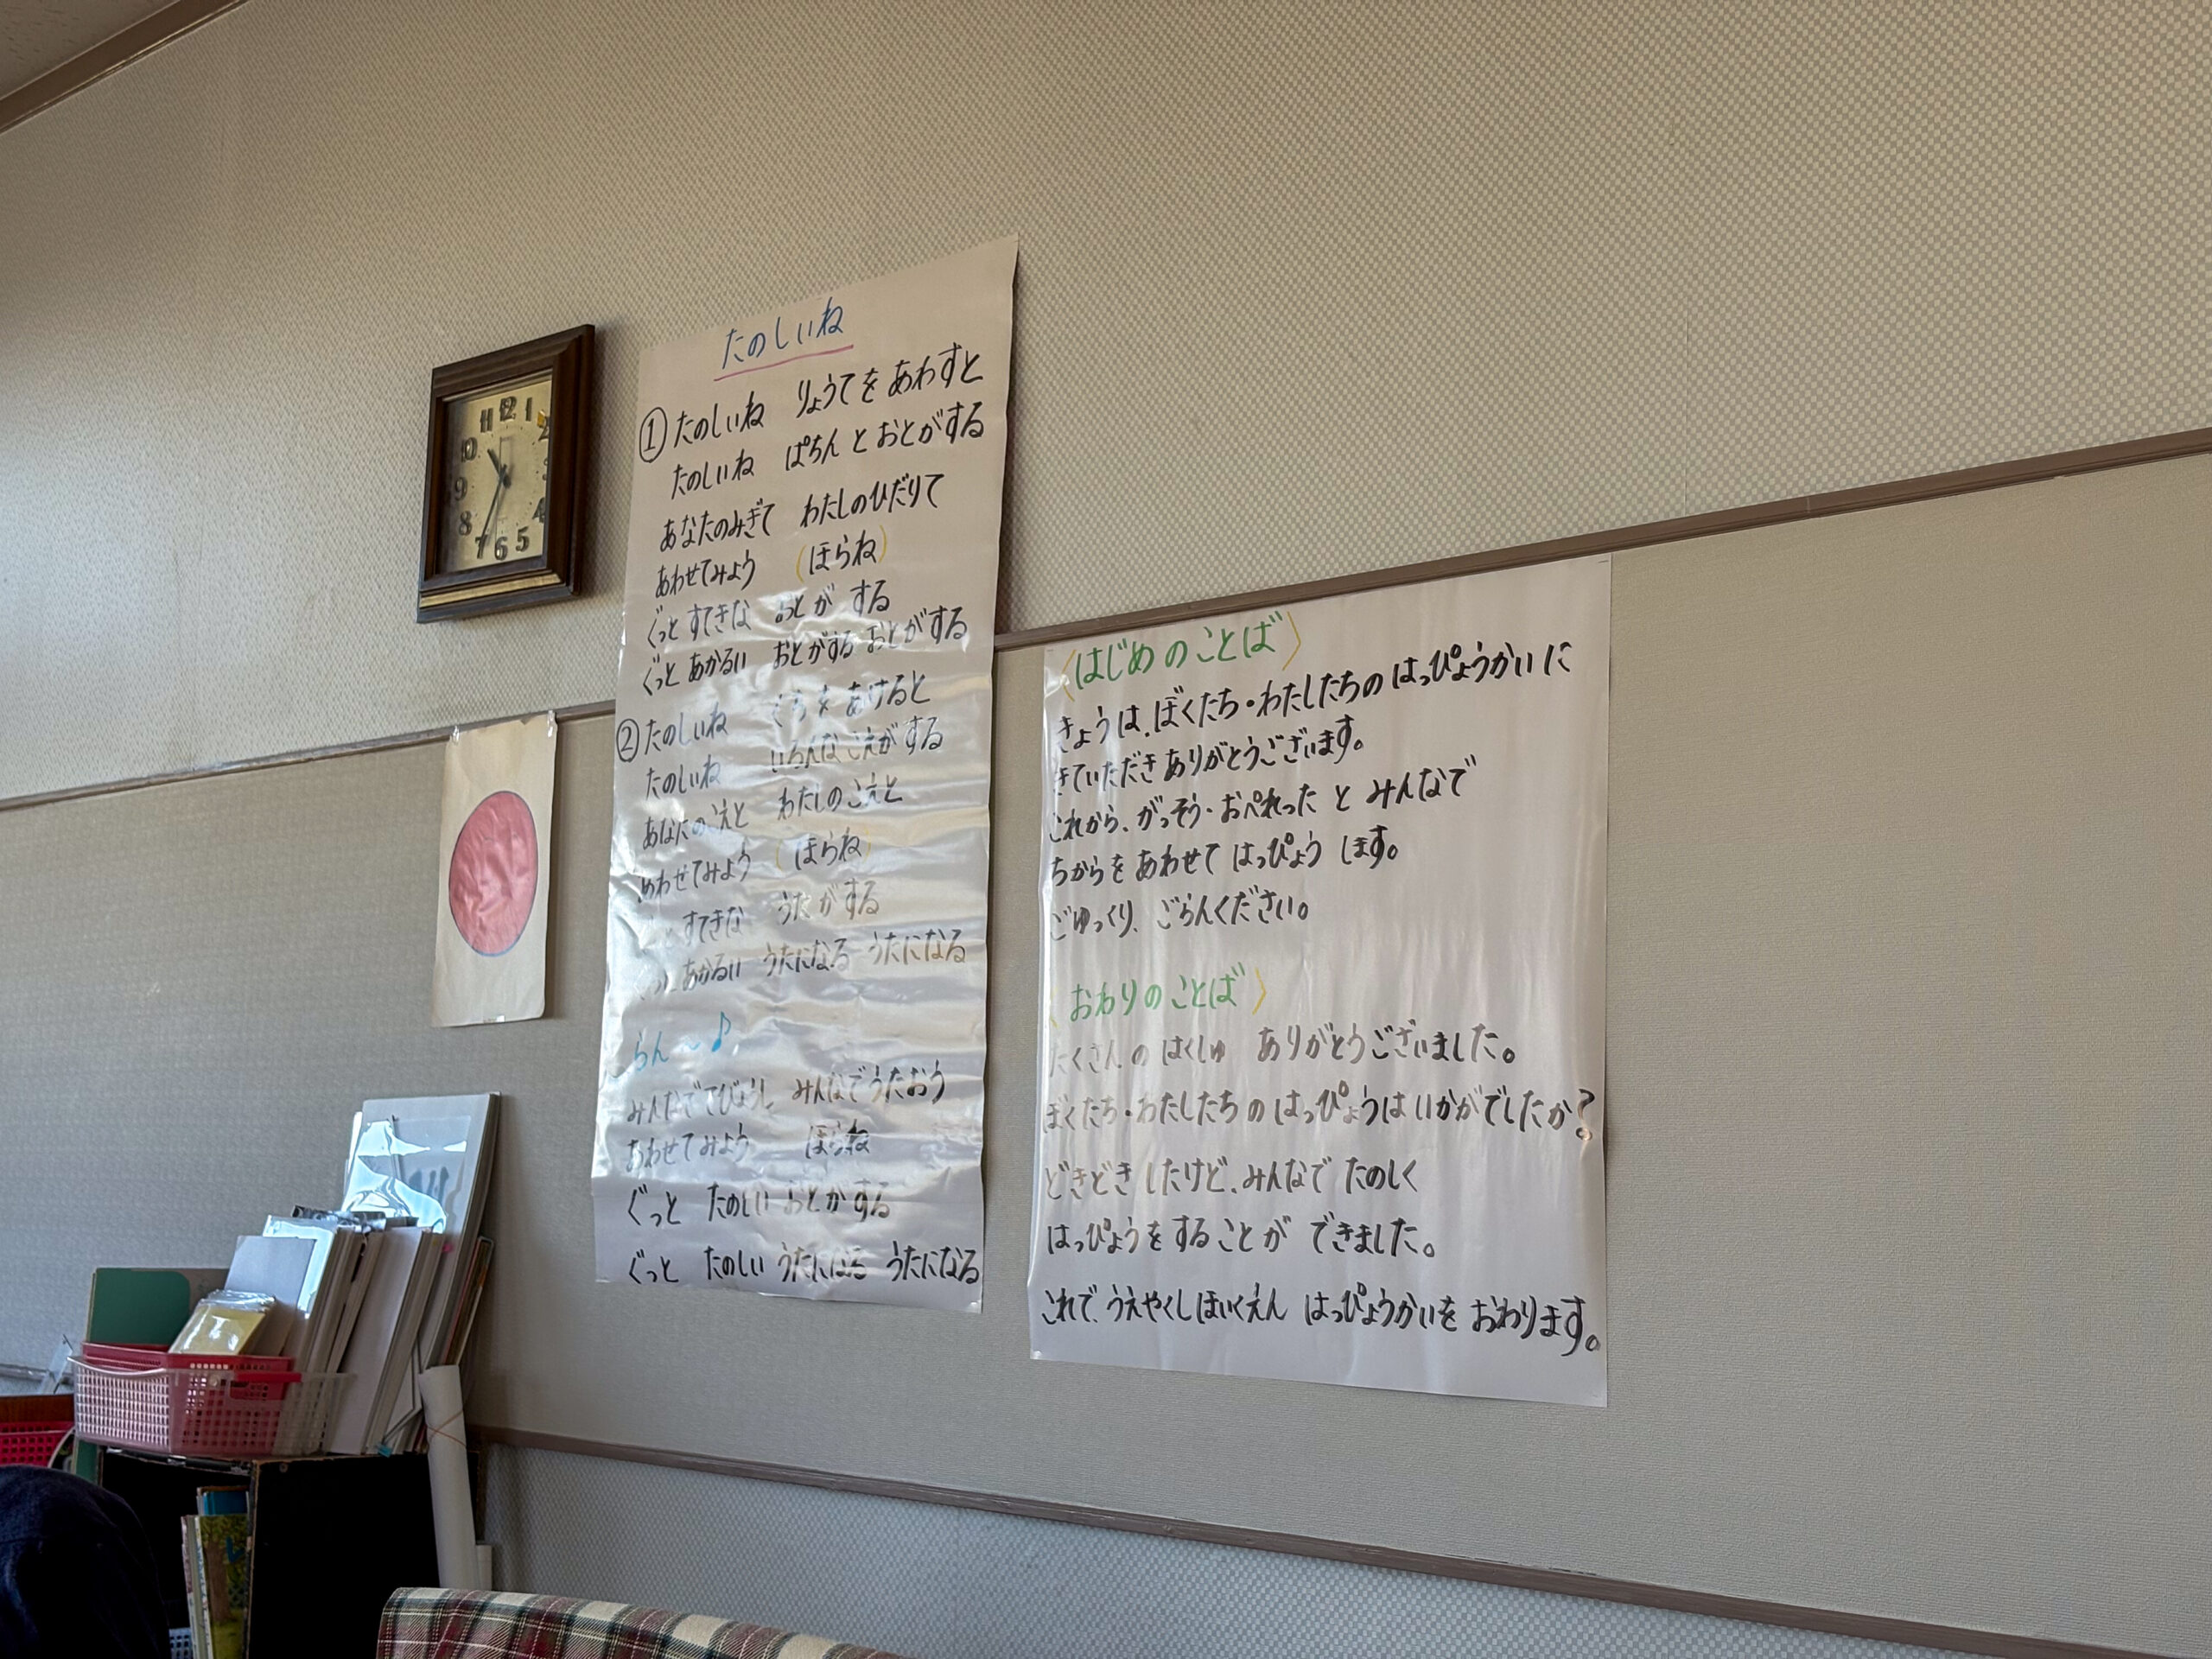 12
1
2
3
4
5
6
7
8
9
10
11
たのしいね
① たのしいね りょうてを あわすと
たのしいね ぱちん と おとがする
あなたのみぎて わたしのひだりて
あわせてみよう (ほらね)
ぐっと すてきな おとが する
ぐっと あかるい おとがする おとがする
② たのしいね くちを あけると
たのしいね いろんなこえがする
あなたのこえと わたしのこえと
あわせてみよう (ほらね)
すてきな うたがする
あかるい うたになる うたになる
らん〜♪
みんなでてびょうし みんなでうたおう
あわせてみよう ほらね
ぐっと たのしい おとがする
ぐっと たのしい うたになる うたになる
〈はじめのことば〉
きょうは、ぼくたち・わたしたちの はっぴょうかいに
きていただき ありがとうございます。
これから、がっそう・おぺれった と みんなで
ちからを あわせて はっぴょう します。
ごゆっくり、ごらんください。
〈おわりのことば〉
たくさんの はくしゅ ありがとうございました。
ぼくたち・わたしたちの はっぴょうは いかがでしたか?
どきどき したけど、みんなで たのしく
はっぴょうを することが できました。
これで、うえやくしほいくえん はっぴょうかいを おわります。